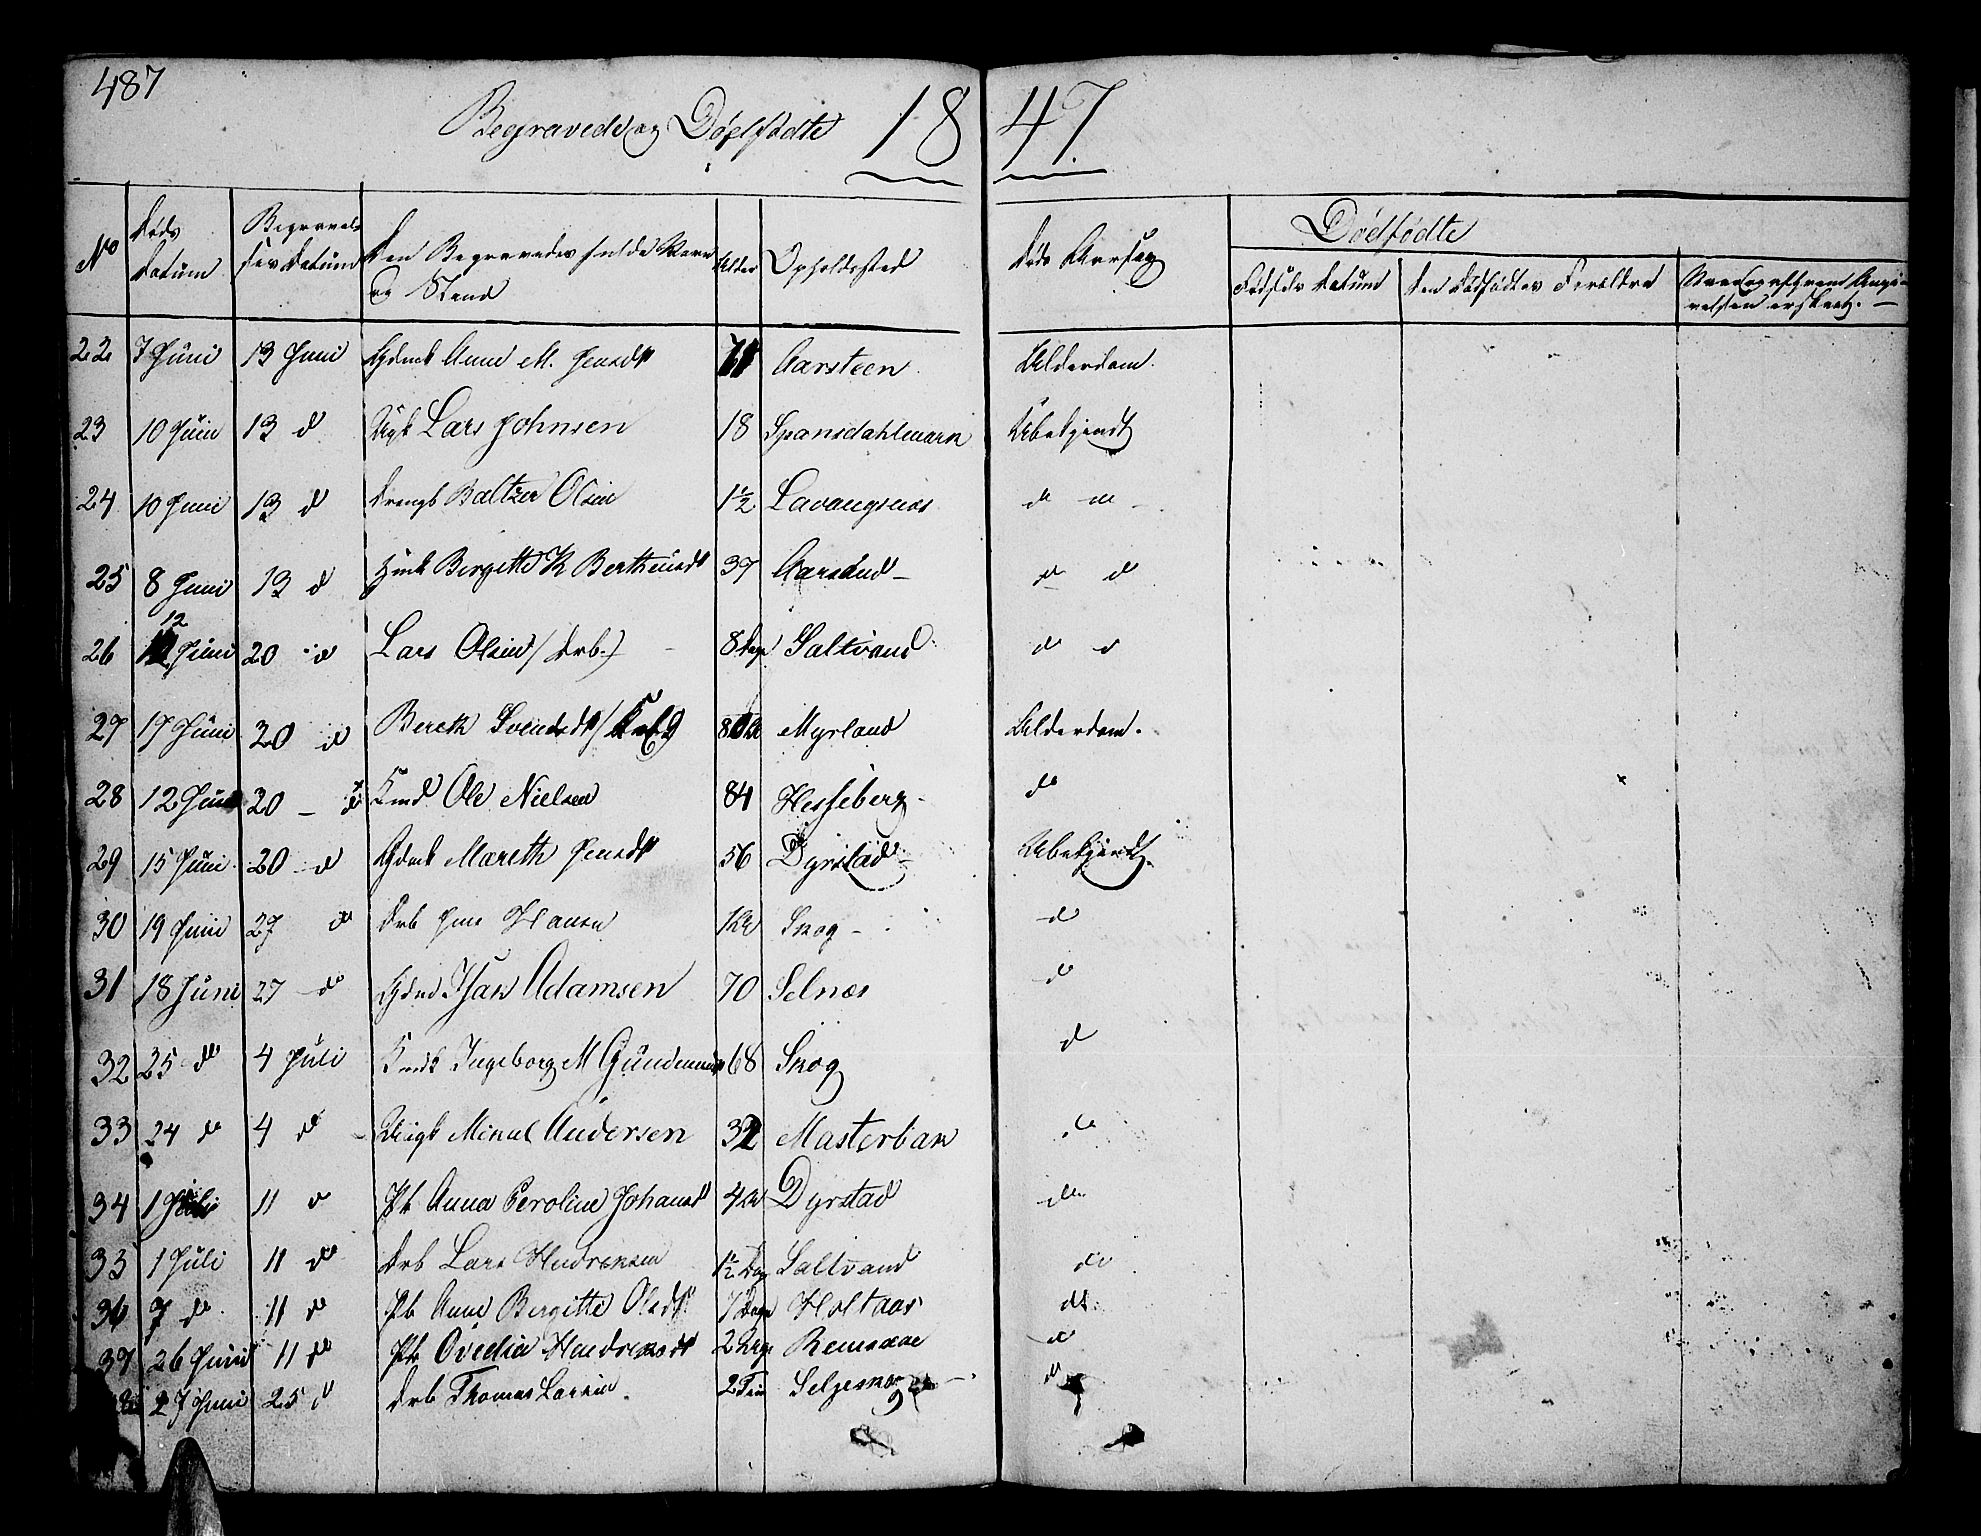 487
Begravede og Døelfødte 18 47.
No
Døds Datum
Begravel- ses Datum
Den Begravedes fulde Navn og Stand
Alder
Opholdssted
Døds Aarsag
Døelfødte
Fødsels Datum
Den Dødfødtes Foreldre
22 7 Juni 13 Juni Gdmk Anne M. Jensdt Aarsteen Alderdom.
23 10 Juni 13 d Ugk Lars Johnsen 18 Spansdahlmark Ubekjendt
24 10 Juni 13 d Drengb Baltzer Olsen 1½ Lavangsnæs d
25 8 Juni 13 d Hmk Birgitte K Bertheusdt 37 Aarsand d d
26 12 Juni 20 d Lars Olsen / Drb.) 8 Dage Saltvand d d
27 17 Juni 20 d Bereth Svendsdt Myrland Alderdom.
28 12 Juni 20 - d Kmd Ole Nielsen 84 Hesseberg d
29 15 Juni 20 d Gdmk Mareth Jensdt 56 Dyrstad Ubekjendt
30 19 Juni 27 d Drb Jens Hansen 1 Aar Skog d
31 18 Juni 27 d Gdmd Isak Adamsen 70 Selnæs d
32 25 d 4 Juli Kmdk Ingeborg M Gundersen 68 Skog d
33 24 d 4 d Ungk Mikal Andersen 32 Masterbak d
34 1 Juli 11 d Pb Anna Caroline Johansdt 4 Aar Dyrstad d
35 1 Juli 11 d Drb Lars Hendriksen 1½ Dag Saltvand d
36 7 d 11 d Pb Anne Bergitte Olsdt 7 Dage Holtaas d
37 26 Juni 11 d Pb Ovedia Hendriksdt 2 Dage Rensaae d
38 27 Juni 25 d Drb Thomas Larsen. 2 Tim Selgeskog d